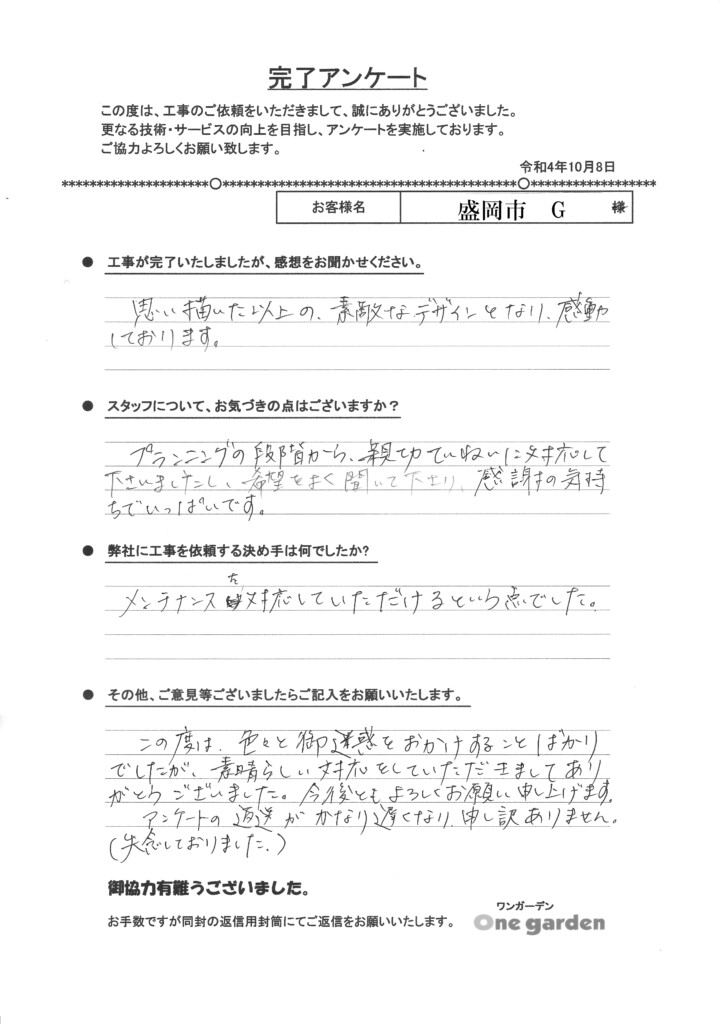 完了アンケート
この度は、工事のご依頼をいただきまして、誠にありがとうございました。
更なる技術・サービスの向上を目指し、アンケートを実施しております。
ご協力よろしくお願い致します。
令和4年10月8日
お客様名 盛岡市 G 様
● 工事が完了いたしましたが、感想をお聞かせください。
思い描いた以上の、素敵なデザインとなり、感動
しております。
● スタッフについて、お気づきの点はございますか？
プランニングの段階から、親切ていねいに対応して
下さいましたし、希望をよく聞いて下さり、感謝の気持
ちでいっぱいです。
● 弊社に工事を依頼する決め手は何でしたか?
メンテナンスを対応していただけるという点でした。
● その他、ご意見等ございましたらご記入をお願いいたします。
この度は、色々と御迷惑をおかけすることばかり
でしたが、素晴らしい対応をしていただきましてあり
がとうございました。今後ともよろしくお願い申し上げます。
アンケートの返送がかなり遅くなり、申し訳ありません。
(失念しておりました。)
御協力有難うございました。
お手数ですが同封の返信用封筒にてご返信をお願いいたします。
ワンガーデン
One garden